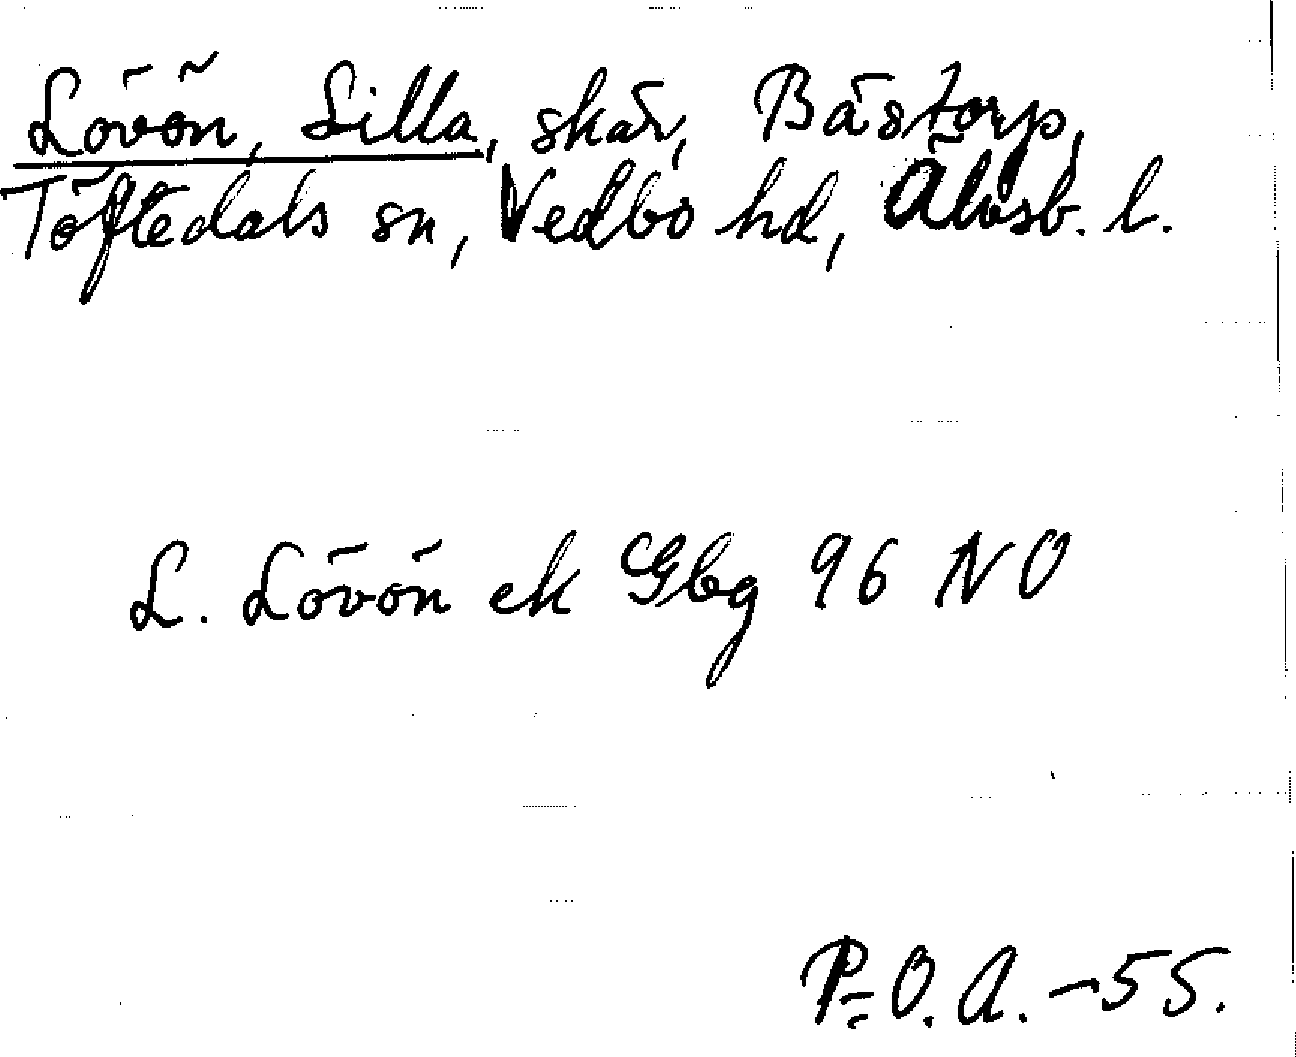 Lövön, Lilla, skär, Bästorp,
Töftedals sn, Vedbo hd, Älvsb. l.
L. Lövön ek Gbg 96 NO
P=O.A. -55.